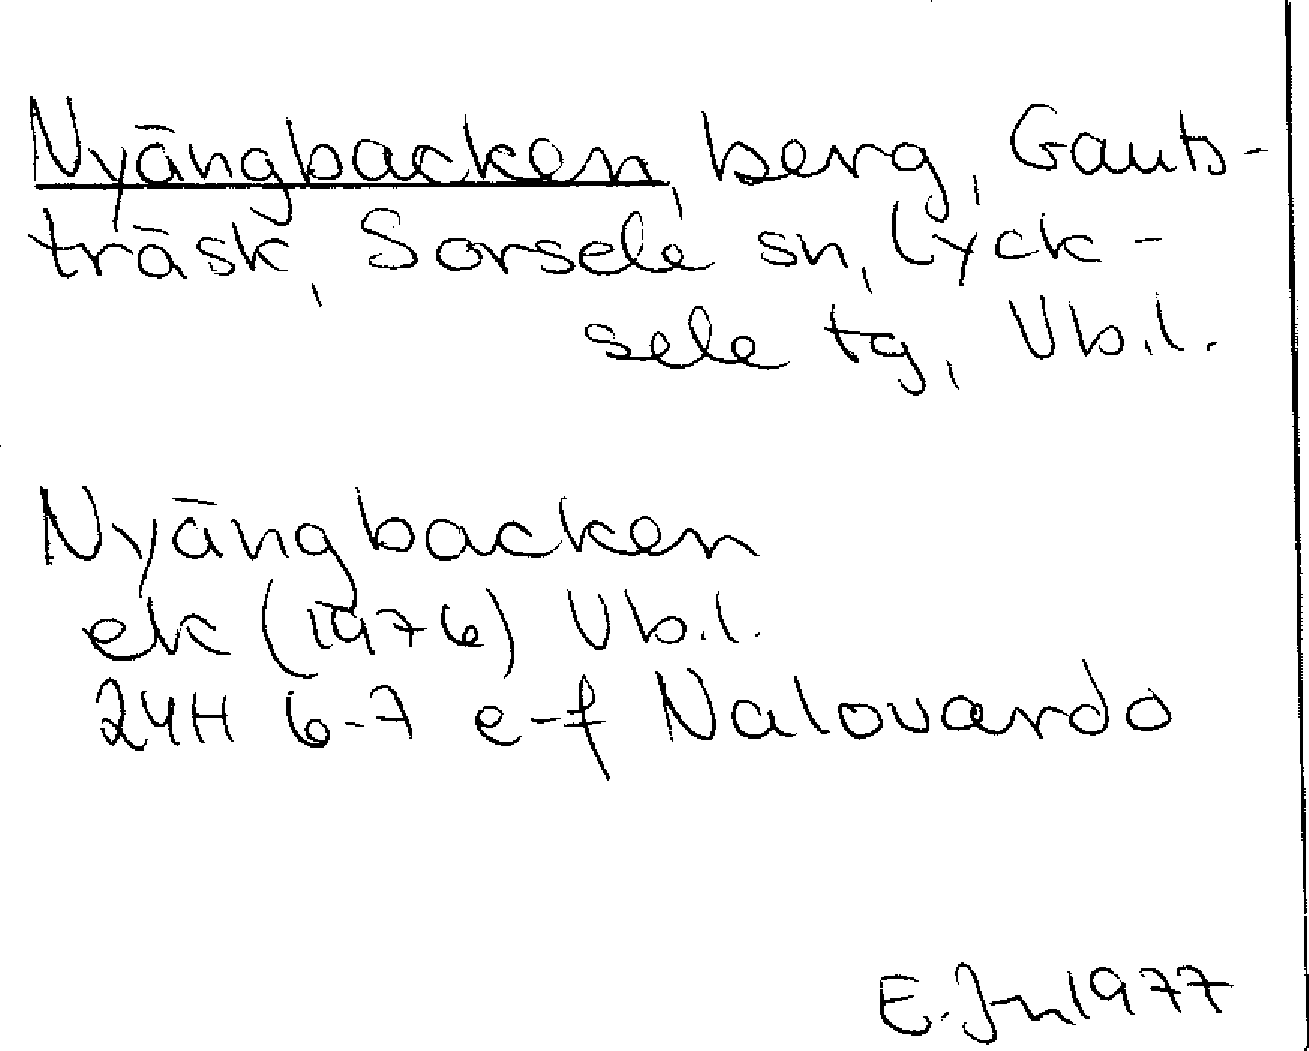 Nyängbacken, berg, Gauts-
träsk, Sorsele sn, Lyck-
sele tg, Vb.l.
Nyängbacken
ek (1976) Vb.l.
24H 6-7 e-f Nalovardo
E. 1977